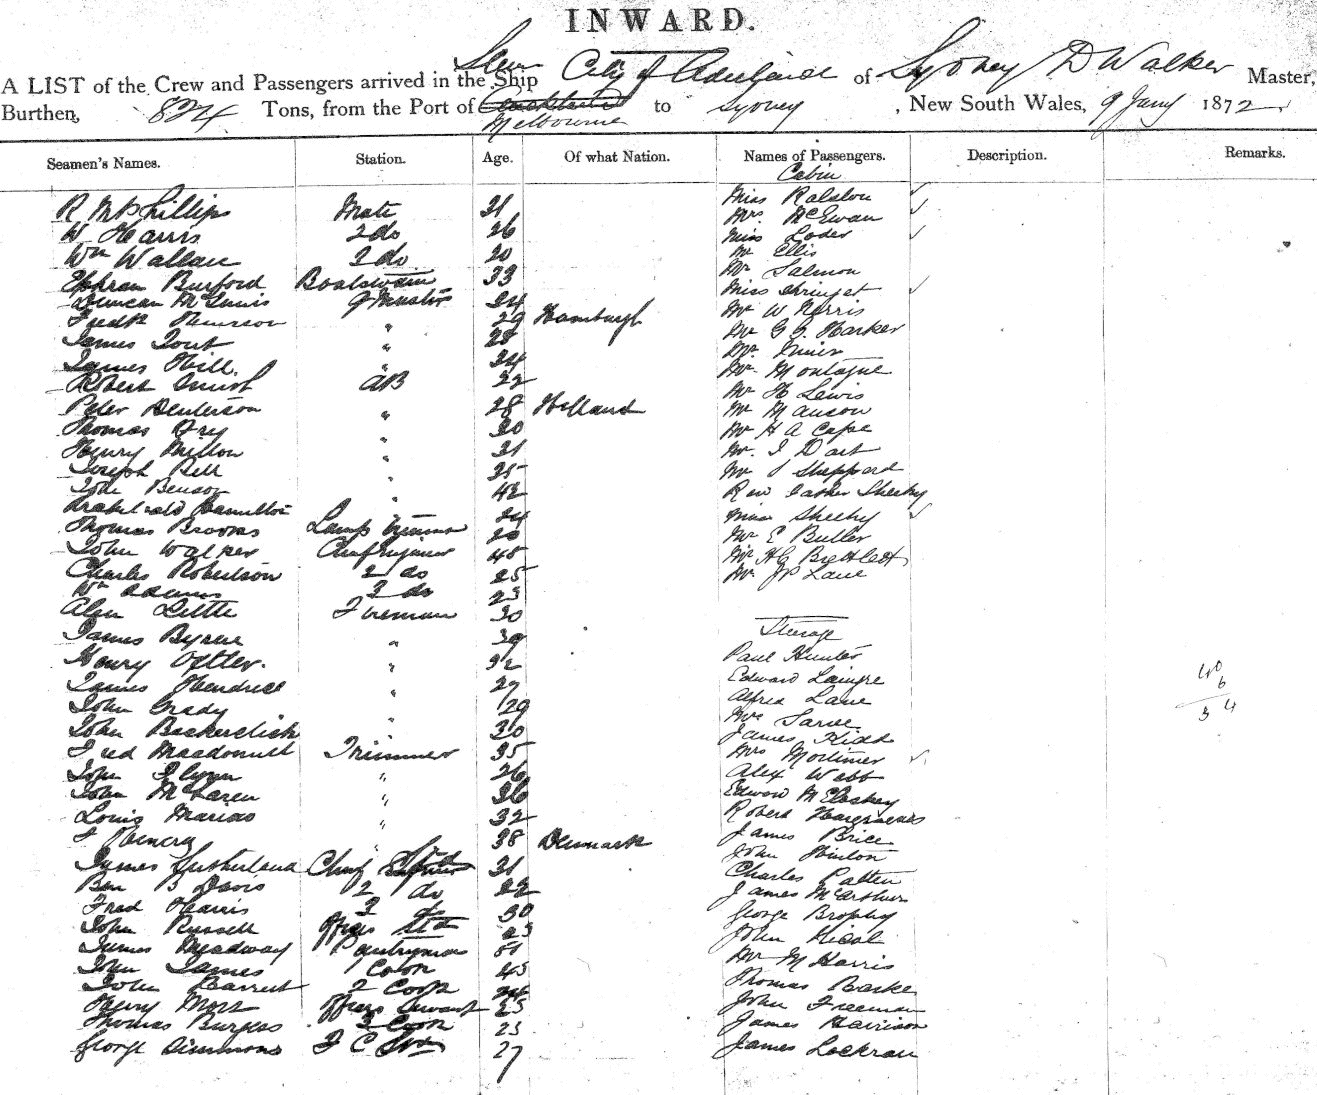 INWARD.
Steam
A LIST of the Crew and Passengers arrived in the Ship City of Adelaide of Sydney D Walker Master,
Burthen, 824 Tons, from the Port of Melbourne to Sydney, New South Wales, 9 Jany 1872
Seamen's Names. Station. Age. Of what Nation. Names of Passengers. Description. Remarks.
Cabin
R McPhillips Mate 31
W Harris 2 do 26
Wm Wallace 3 do 20
Burford Boatswain 33
Duncan McInnis 24
Fredk 29 Hamburgh
James
James Hill 24
Robert AB 22
Peter " 28 Holland
Thomas "
Henry " 31
Joseph Bell " 25
John Benson " 42
Archibald Hamilton 24
Thomas Brooks Lamp Trimmer 20
John Walker Chief Engineer 45
Charles Robertson 2 do 25
Wm Adams 3 do 23
Alan Little Fireman 30
James Byrne " 39
Henry " 32
James Hendrice " 27
John Grady " 29
John " 30
Fred Macdonnell Trimmer 35
John Flynn " 26
John McLaren " 36
Louis " 32
F " 38 Denmark
James Sutherland Chief 31
Ben B Davis 2 do 22
Fred Harris 3 30
John Russell Officers Std 23
James Meadway Pantryman 51
John James Cook 43
John Barrett 2 Cook 24
Henry Officers Servant 25
Thomas Burgess 3 Cook 23
George Simmons 27
Miss Ralston
Mrs McEwan
Miss Loder
Mr Ellis
Mr Salmon
Miss
Mr W Norris
Mr G G Harker
Mr
Mr Montague
Mr H Lewis
Mr Manson
Mr H A Cape
Mr. I Dart
Mr Sheppard
Rev Father Sheehy
Miss Sheehy
Mr E Butler
Mr H G
Mr JP Lane
Steerage
Paul Hunter
Edward
Alfred Lane
Mrs
James Kidd
Mrs Mortimer
Alex Webb
Edward McCloskey
Robert Hargreaves
James Brice
John Hinton
Charles Patten
James McArthur
George Brophy
John
Mr M Harris
Thomas Barke
John Freeman
James Harrison
James Lockran
40
6
34